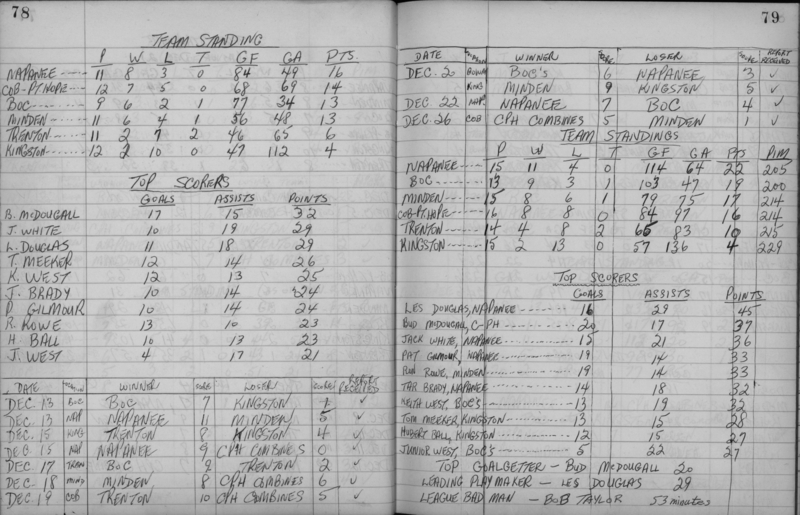 78
TEAM STANDING
P W L T GF GA PTS.
NAPANEE 11 8 3 0 84 49 16
COB-PT. HOPE 12 7 5 0 68 69 14
BOC 9 6 2 1 77 34 13
MINDEN 11 6 4 1 56 48 13
TRENTON 11 2 7 2 46 65 6
KINGSTON 12 2 10 0 47 112 4
TOP SCORERS
GOALS ASSISTS POINTS
B. MCDOUGALL 17 15 32
J. WHITE 10 19 29
L. DOUGLAS 11 18 29
T. MEEKER 12 14 26
K. WEST 12 13 25
J. BRADY 10 14 24
P. GILMOUR 10 14 24
R. ROWE 13 10 23
H BALL 10 13 23
J. WEST 4 17 21
DATE WINNER SCORE LOSER SCORE REPORT RECEIVED
DEC. 13 BOC BOC 7 KINGSTON 1 ✓
DEC. 13 NAP NAPANEE 11 MINDEN 5 ✓
DEC. 15 KING TRENTON 8 KINGSTON 4 ✓
DEC 15 NAP NAPANEE 9 CPH COMBINES 0 ✓
DEC. 17 TREN BOC 2 TRENTON 2 ✓
DEC. 18 MIND MINDEN 8 CPH COMBINES 6 ✓
DEC 19 COB TRENTON 10 CPH COMBINES 5 ✓
79
DATE WINNER SCORE LOSER SCORE REPORT RECEIVED
DEC. 20 BOC'S 6 NAPANEE 3 ✓
KING MINDEN 9 KINGSTON 5 ✓
DEC. 22 NAP. NAPANEE 7 BOC 4 ✓
DEC. 26 COB CPH COMBINES 5 MINDEN 1 ✓
TEAM STANDINGS
P W L T GF GA PTS PIM
NAPANEE 15 11 4 0 114 64 22 205
BOC 13 9 3 1 103 47 19 200
MINDEN 15 8 6 1 79 75 17 214
COB-PT. HOPE 16 8 8 0 84 97 16 214
TRENTON 14 4 8 2 65 83 10 215
KINGSTON 15 2 13 0 57 136 4 229
TOP SCORERS
GOALS ASSISTS POINTS
LES DOUGLAS, NAPANEE 16 29 45
BUD MCDOUGALL, C-PH 20 17 37
JACK WHITE, NAPANEE 15 21 36
PAT GILMOUR, NAPANEE 19 14 33
RON ROWE, MINDEN 19 14 33
BRADY, NAPANEE 14 18 32
KEITH WEST, BOC'S 13 19 32
TOM MEEKER KINGSTON 13 15 28
HUBERT BALL, KINGSTON 12 15 27
JUNIOR WEST, BOC'S 5 22 27
TOP GOALGETTER - BUD MCDOUGALL 20
LEADING PLAYMAKER - LES DOUGLAS 29
LEAGUE BAD MAN - BOB TAYLOR 53 minutes